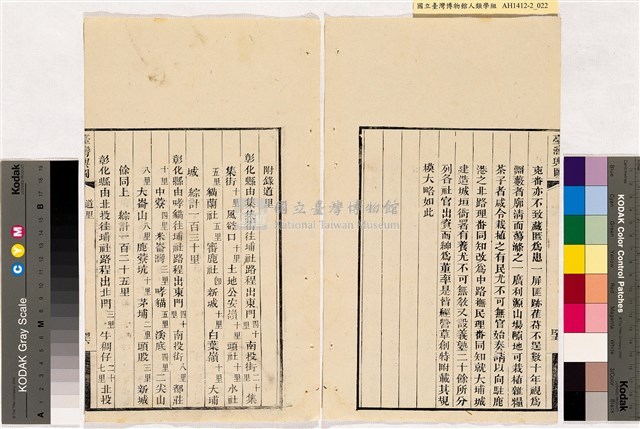 國立臺灣博物館人類學組 AH1412-2_022
臺灣輿圖
兇番亦不致藏匿為患一屏匪跡萑苻不逞數十年視為
淵藪者廓清而蕩滌之一廣利源山場曠地可栽植雜糧
茶子者咸令栽植之有民尤不可無官始奏請以向駐鹿
港之北路理番同知改為中路撫民理番同知就大埔城
建造城垣衙署有養尤不可無教又設義塾二十餘所分
列各社官出資為董率是皆經營草創特附載其規
模大略如此
附錄道里
彰化縣由集集街往埔社路程出東門四十里南投街二十里集
集街十里風谷口十里土地公安嶺十里頭社十里水社
五里貓蘭社五里審鹿社新城十里白葉嶺十里大埔
城 綜計一百三十里
彰化縣由哮貓往埔社路程出東門四十里南投街八里郡莊
十里中藔四里米崙灣三里哮貓五里溪底四里二尖山
八里大崙山八里鹿藔坑十里茅埔二里頭股三里新城
餘同上 綜計一百二十五里
彰化縣由北投往埔社路程出北門三里牛稠仔七里北投
臺灣輿圖 道里
國立臺灣博物館
National Taiwan Museum
Kodak
KODAK Gray Scale
C Y M
KODAK Color Control Patches